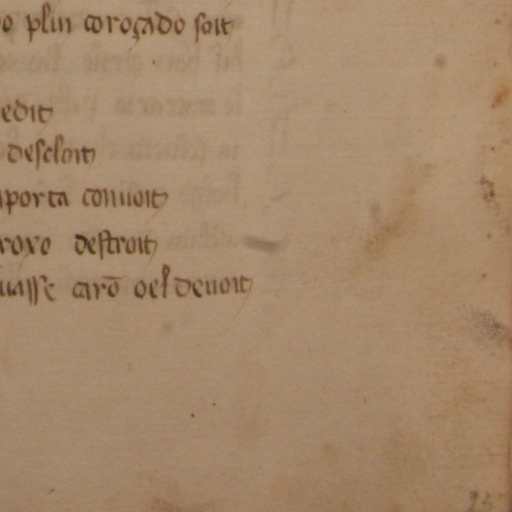 o plui coroçado soit
edit
descloit
porta conuoit
roxo destroit
uasse carō oel deuoit
25